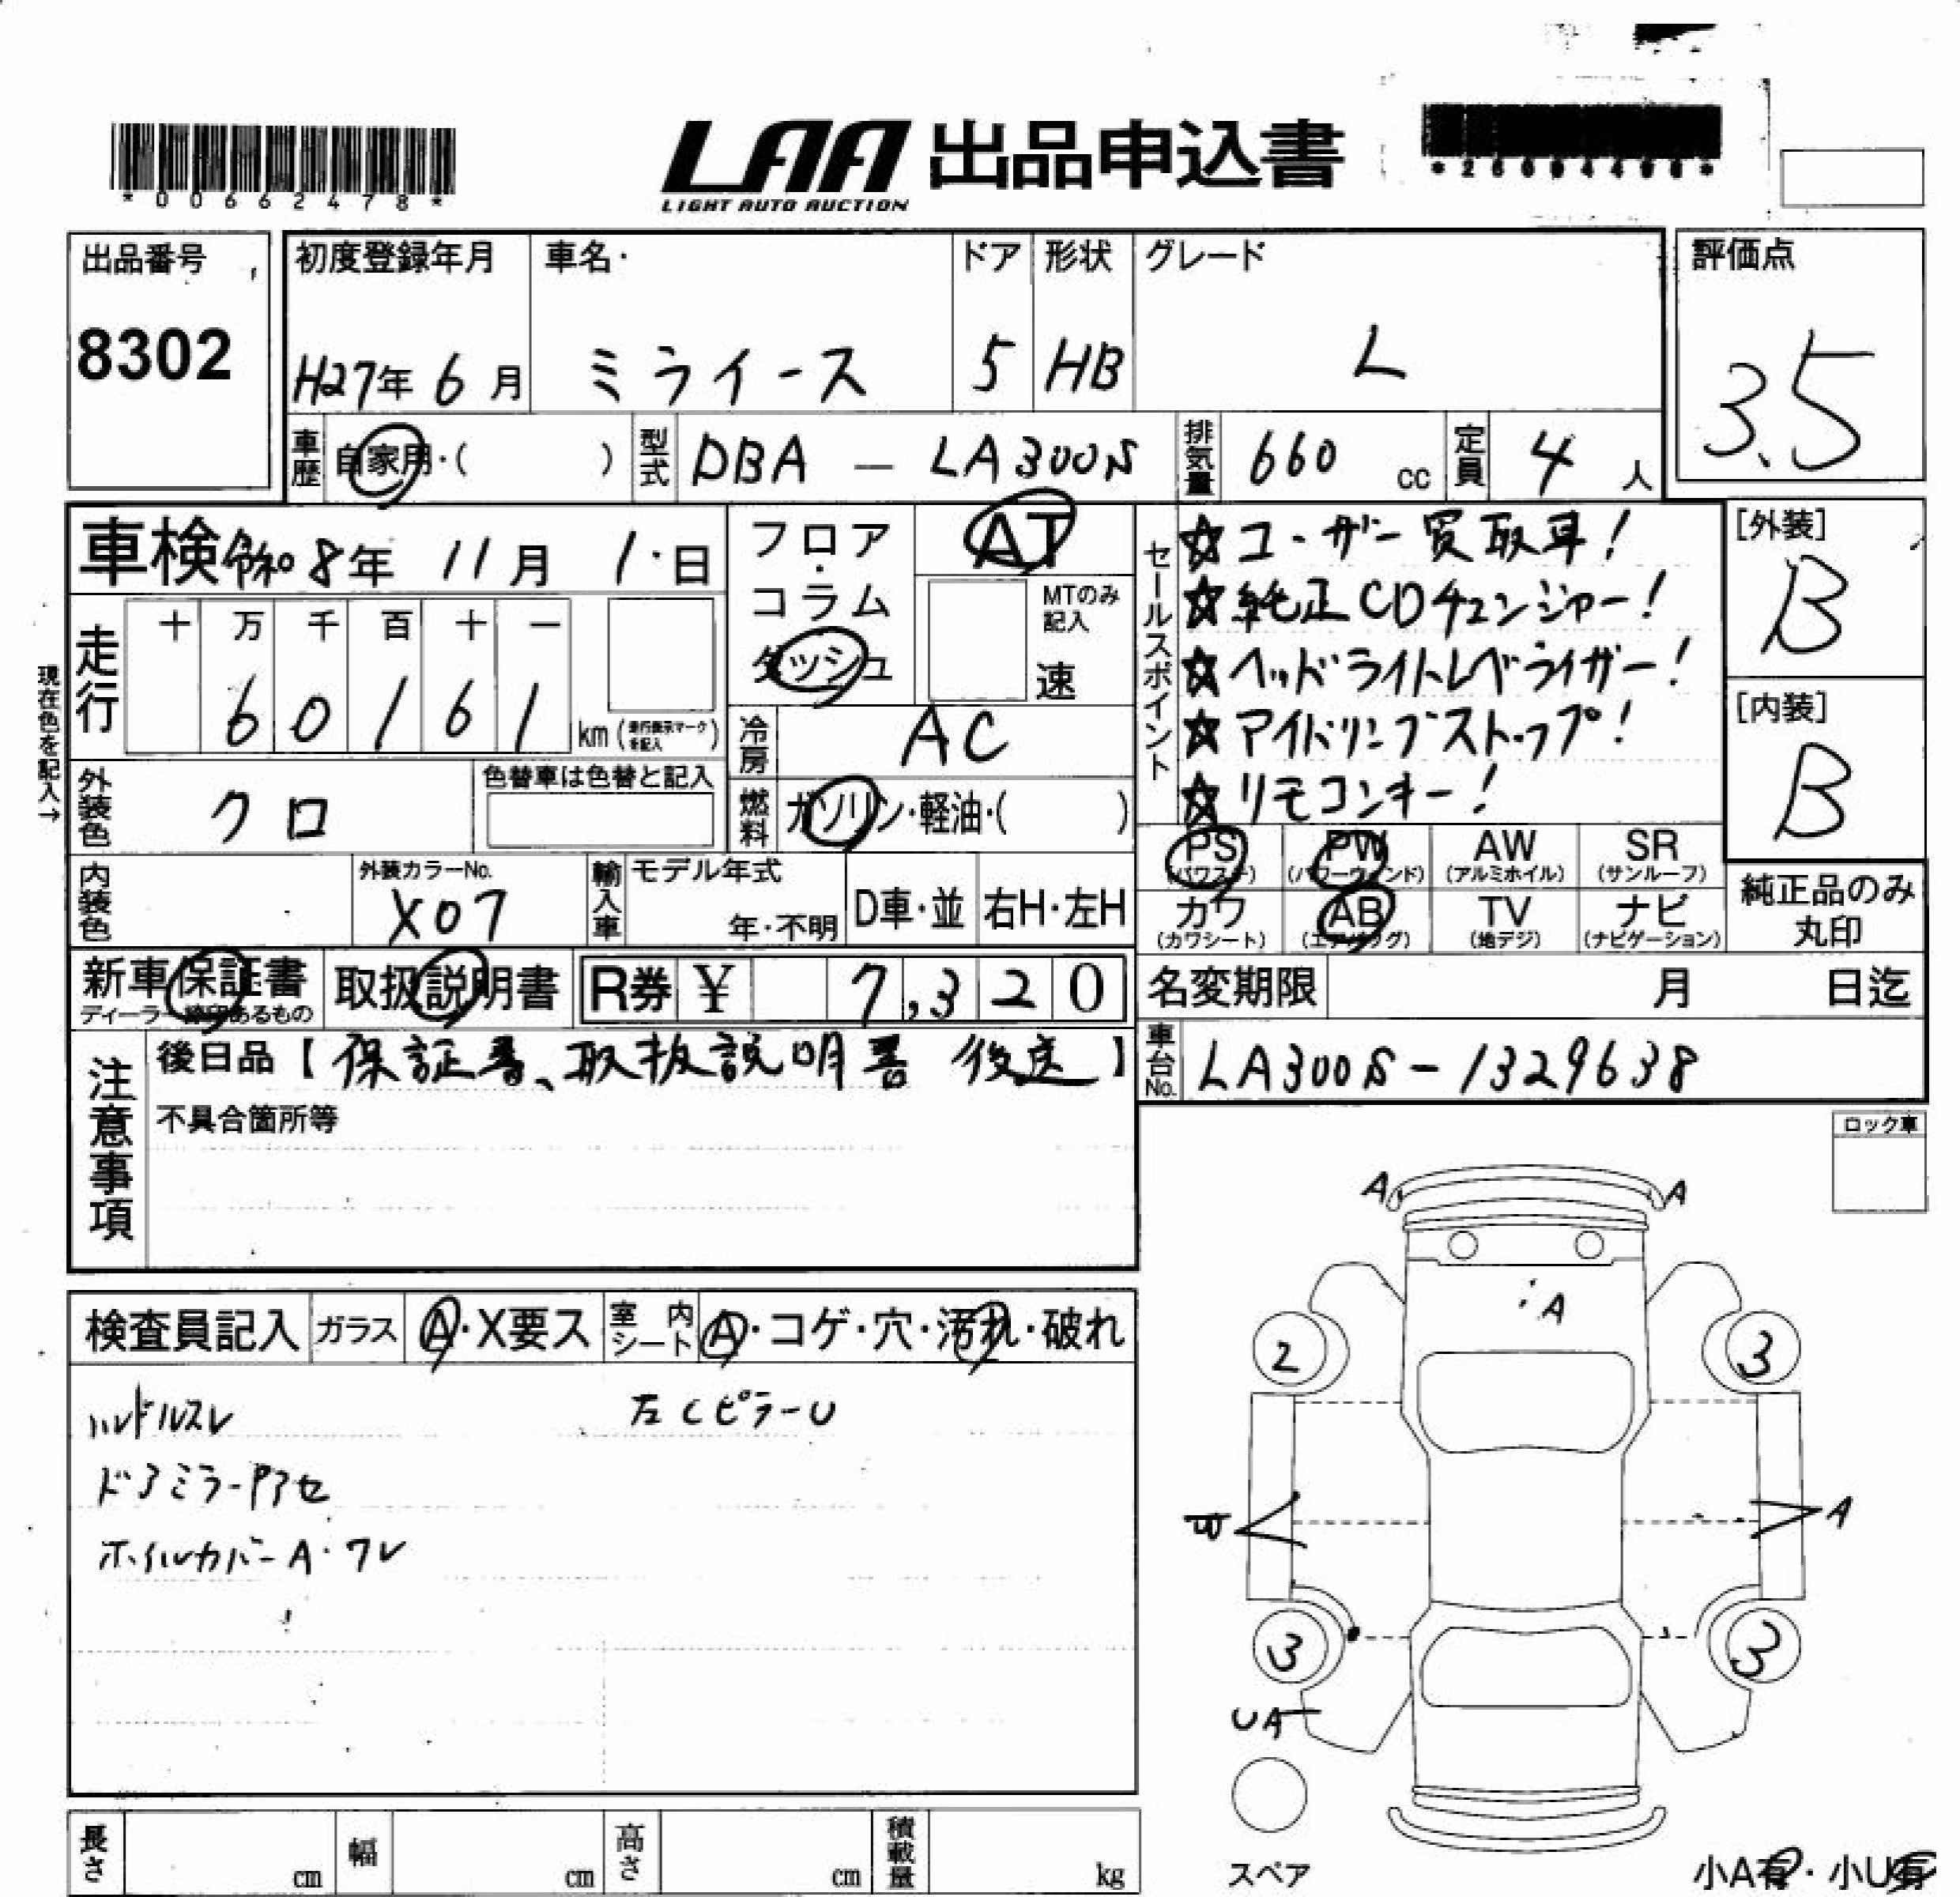 *00662478*
LAA 出品申込書
LIGHT AUTO AUCTION
出品番号
8302
初度登録年月
H27年 6月
車名
ミライース
ドア
5
形状
HB
グレード
L
評価点
3.5
車歴
自家用・( )
型式
DBA - LA300S
排気量
660 cc
定員
4 人
車検 令和 8年 11月 1日
走行
十 万 千 百 十 一
6 0 1 6 1
km (走行表示マークを記入)
現在色を記入→
フロア・コラム
ダッシュ
AT
MTのみ記入
速
冷房
AC
燃料
ガソリン・軽油・( )
セールスポイント
☆ユーザー買取車!
☆純正CDチェンジャー!
☆ヘッドライトレベライザー!
☆アイドリングストップ!
☆リモコンキー!
[外装]
B
[内装]
B
外装色
クロ
色替車は色替と記入
内装色
外装カラーNo.
X07
輸入車
モデル年式
年・不明
D車・並
右H・左H
PS (パワステ)
PW (パワーウィンド)
AW (アルミホイル)
SR (サンルーフ)
カワ (カワシート)
AB (エアバッグ)
TV (地デジ)
ナビ (ナビゲーション)
純正品のみ丸印
新車保証書
取扱説明書
R券 ¥ 7,320
名変期限 月 日迄
車台No.
LA300S-1329638
注意事項
後日品【保証書、取扱説明書 後送】
不具合箇所等
ロック車
検査員記入
ガラス
A・X要ス
室内シート
A・コゲ・穴・汚れ・破れ
ハンドルスレ
左CピラーU
ドアミラーPアセ
ホイルカバーA・ワレ
A
A
A
2
3
A
3
3
UA
スペア
小A有・小U有
長さ cm
幅 cm
高さ cm
積載量 kg